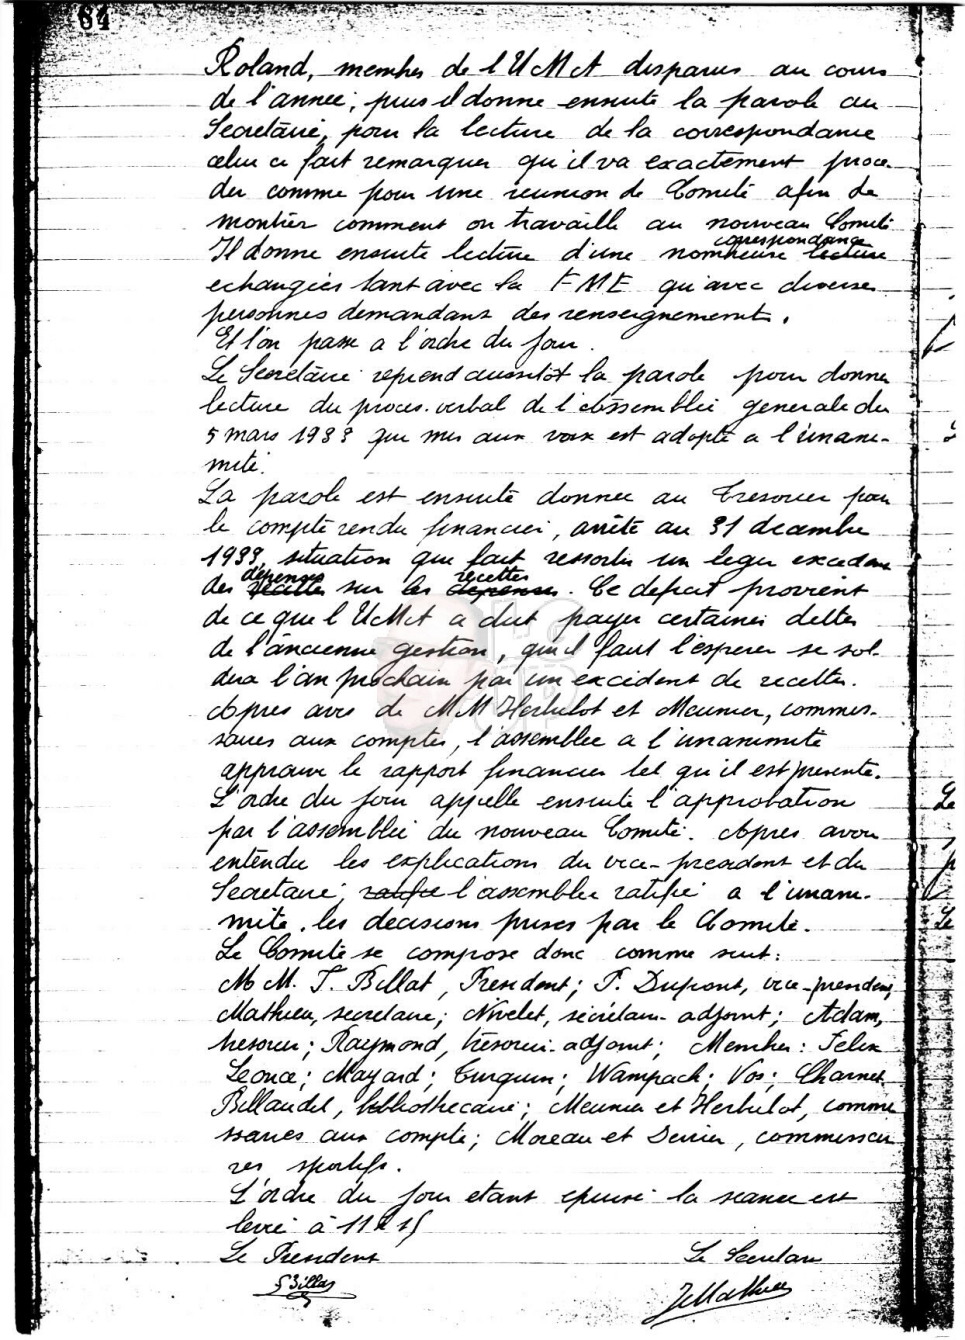 84
Roland, membres de l'UMA disparus au cours
de l'année; puis il donne ensuite la parole au
Secretaire, pour la lecture de la correspondance
celui ci fait remarquer qu'il va exactement proce
der comme pour une reunion de Comité afin de
montrer comment on travaille au nouveau Comité
Il donne ensuite lecture d'une nombreuse lecture correspondance
echangées tant avec la FME qu'avec diverses
personnes demandant des renseignements.
Et l'on passe a l'ordre du jour.
Le Secretaire reprend aussitot la parole pour donner
lecture du proces-verbal de l'Assemblée generale du
5 mars 1933 qui mis aux voix est adopté a l'unani-
mité.
La parole est ensuite donnee au Tresorier pour
le compte rendu financier, arrêté au 31 decembre
1933, situation qui fait ressortir un leger excedent
des recettes dépenses sur les depenses recettes. Ce deficit provient
de ce que l'UMA a dut payer certaines dettes
de l'ancienne gestion, qui il faut l'esperer se sol-
dera l'an prochain par un excédent de recettes.
Apres avis de MM Herbulot et Meunier, commis-
saires aux comptes, l'assemblee a l'unanimité
approuve le rapport financier tel qu'il est presenté.
L'ordre du jour appelle ensuite l'approbation
par l'assemblée du nouveau Comité. Apres avoir
entendu les explications du vice-president et du
Secretaire, ratifie l'assemblee ratifie a l'unani-
mité les decisions prises par le Comité.
Le Comité se compose donc comme suit:
MM. F. Billat, President; P. Dupont, vice-president,
Mathieu, secretaire; Nivelet, secrétaire-adjoint; Adam,
tresorier; Raymond, trésorier-adjoint; Membres: Felix
Leonce; Mayard; Turquin; Wampach; Vos; Charnet
Billaudel, bibliothecaire; Meunier et Herbulot, commi
ssaires aux compte; Moreau et Devrier, commissai
res sportifs.
L'ordre du jour etant epuisé la seance est
levée à 11h15
Le President Le Secretaire
Billat JMathieu